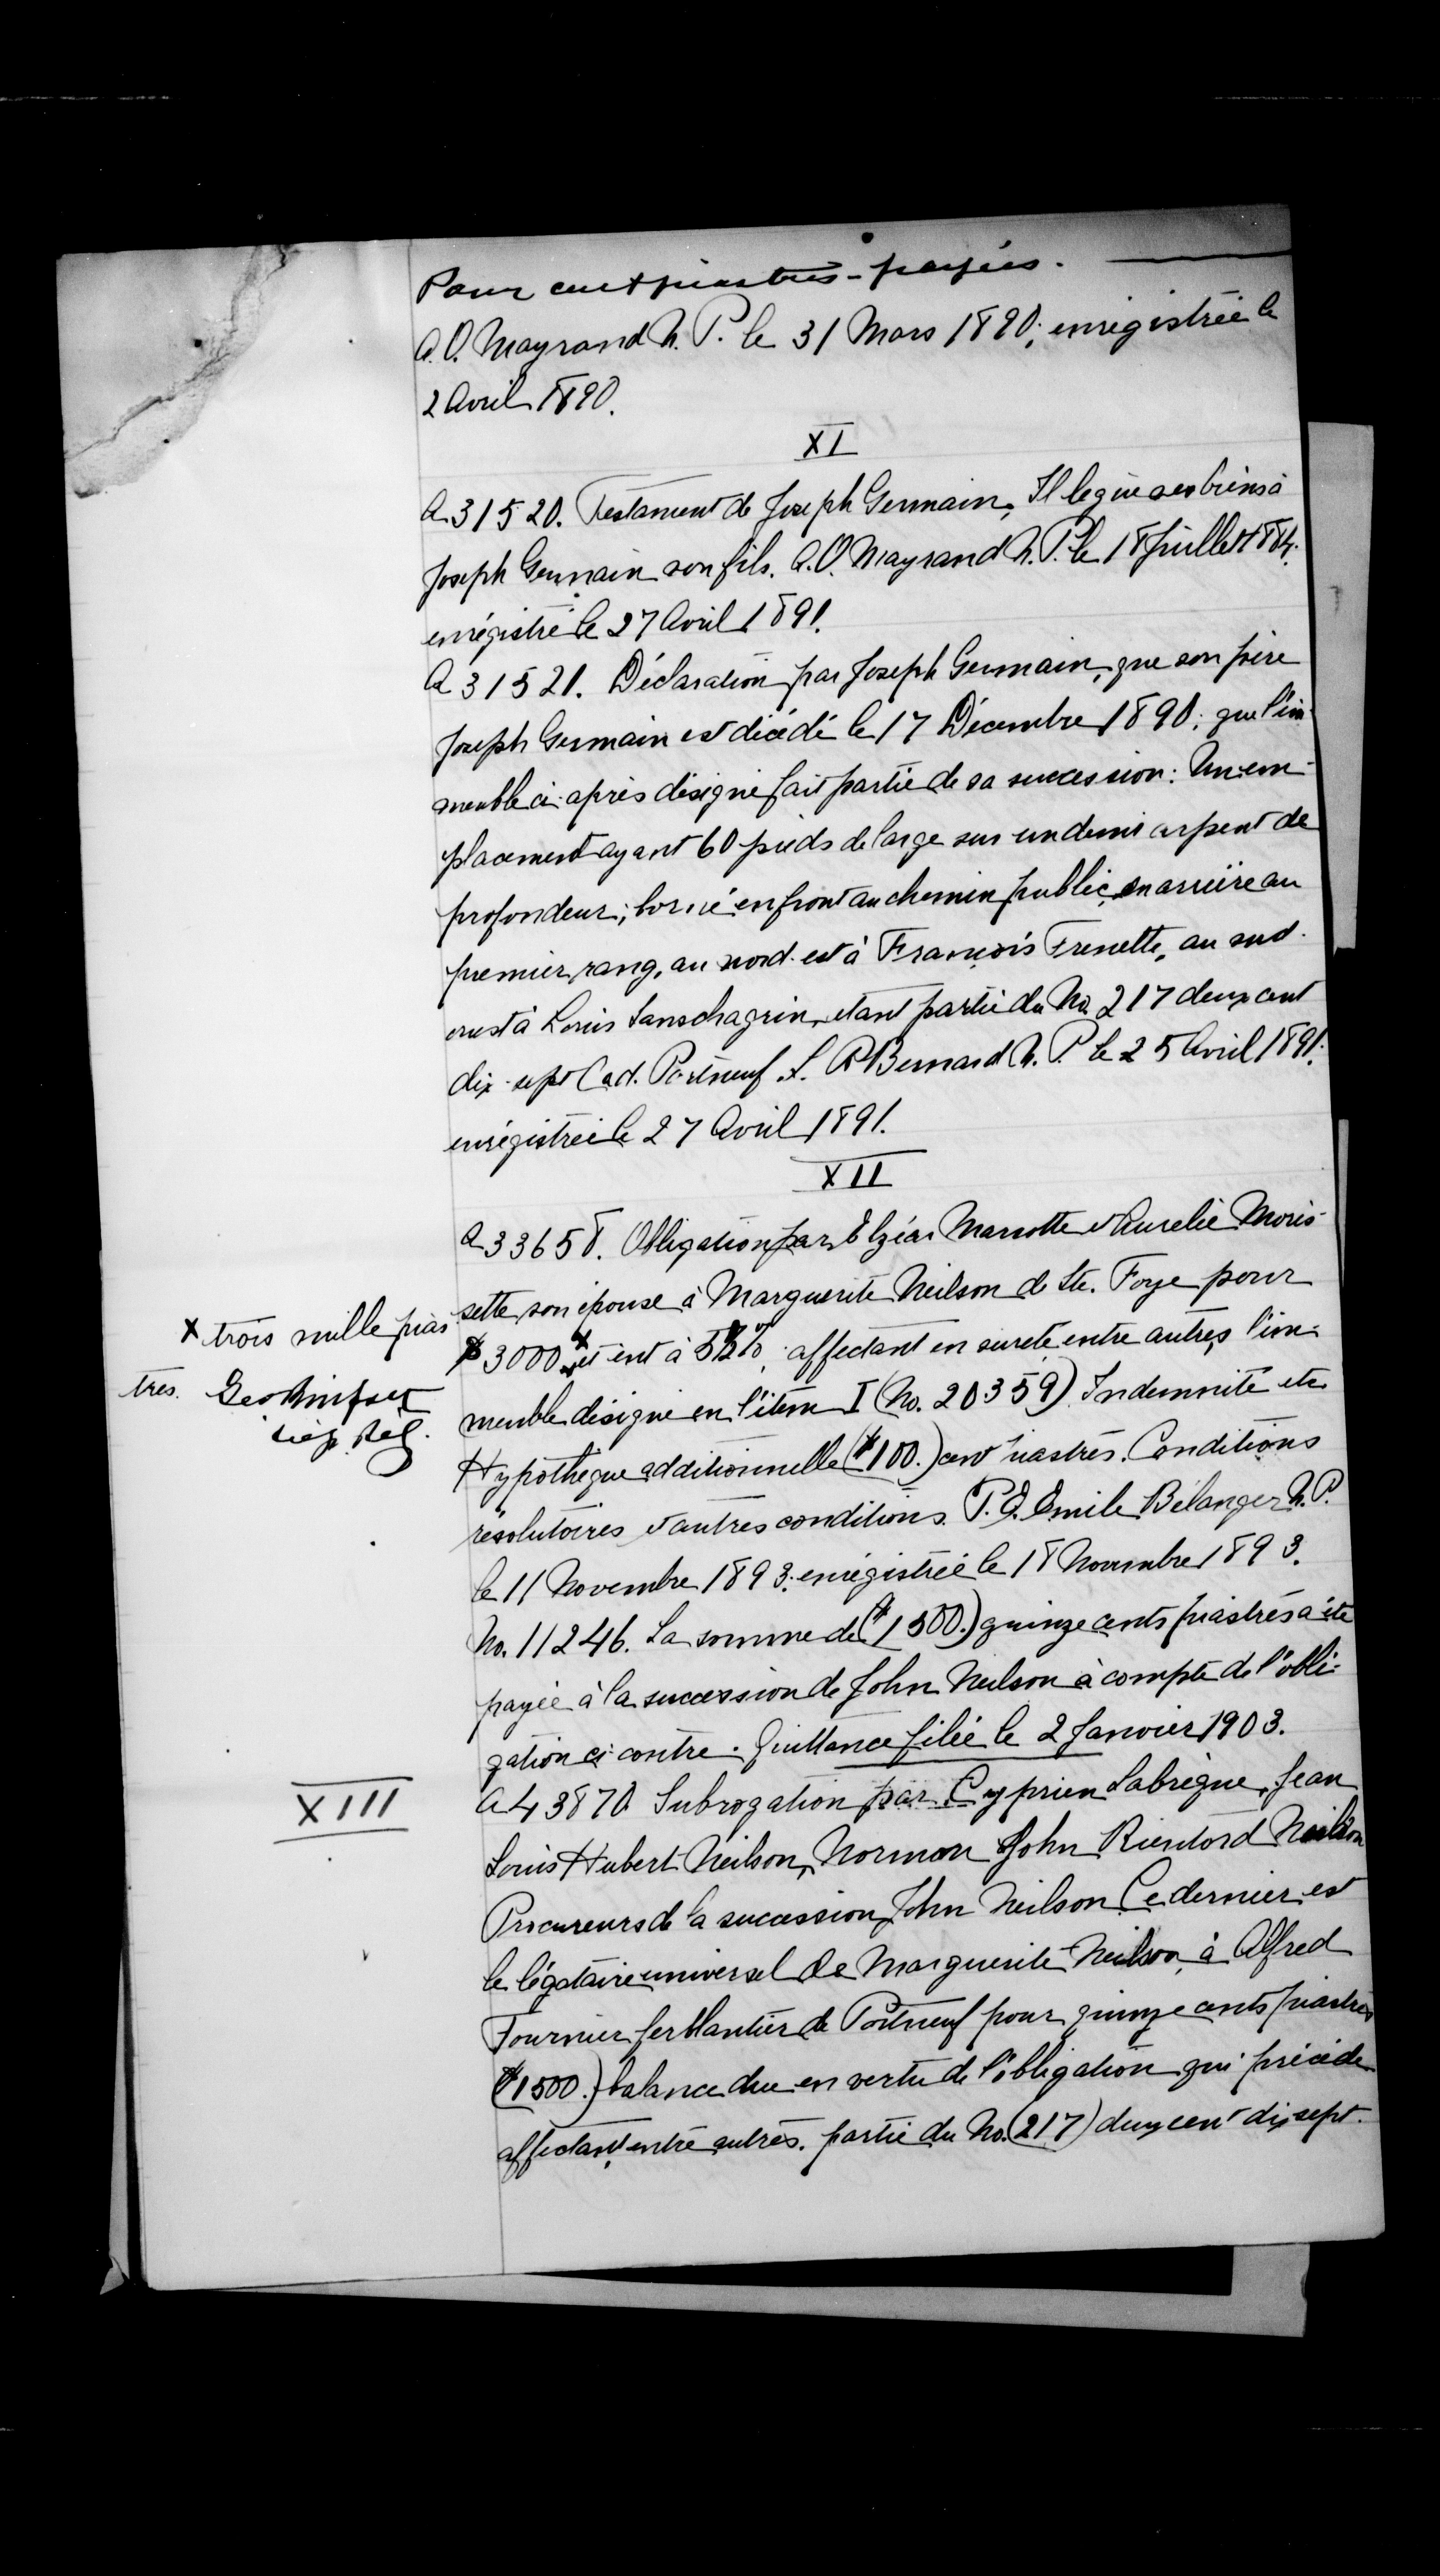 Pour cent piastres - payées.
A.O. Mayrand N.P. le 31 Mars 1890; enrégistrée le
2 Avril 1890.
XI
A 31520. Testament de Joseph Germain, Il legue ses biens à
Joseph Germain son fils. A.O. Mayrand N.P. le 18 Juillet 1884.
enrégistré le 27 Avril 1891.
A 31521. Déclaration par Joseph Germain, que son père
Joseph Germain est décédé le 17 Décembre 1890; que l'im-
meuble ci-après désigné fait partie de sa succession: Un em-
placement ayant 60 pieds de large sur un demi arpent de
profondeur; borné en front au chemin public, en arrière au
premier rang, au nord-est à François Frenette, au sud-
ouest à Louis Sanschagrin, étant partie du No. 217 deux cent
dix-sept Cad. Portneuf. L. A Bernard N.P. le 25 Avril 1891.
enrégistrée le 27 Avril 1891.
XII
A 33658. Obligation par Elzéar Marcotte et Aurelie Moris-
sette son épouse à Marguerite Neilson de Ste. Foye pour
$3000 x et int à 5½%, affectant en sureté entre autres, l'im-
x trois mille pias
tres. Geo
Dép Rég.
meuble désigné en l'item I (No. 20359) Indemnité etc
Hypothèque additionnelle ($100.) cent piastres. Conditions
résolutoires et autres conditions. P.E. Emile Bélanger N.P.
le 11 Novembre 1893; enrégistrée le 18 Novembre 1893.
No. 11246. La somme de ($1500.) quinze cents piastres a été
payée à la succession de John Neilson à compte de l'obli-
gation ci-contre. Quittance filée le 2 Janvier 1903.
XIII
A 43870 Subrogation par Cyprien Labrègue, Jean
Louis Hubert Neilson, Norman John Neilson
Procureurs de la succession John Neilson Ce dernier est
le légataire universel de Marguerite Neilson, à Alfred
Fournier ferblantier de Portneuf pour quinze cents piastres
($1500.) balance due en vertu de l'obligation qui précède
affectant, entre autres. partie du No. (217) deux cent dix sept.